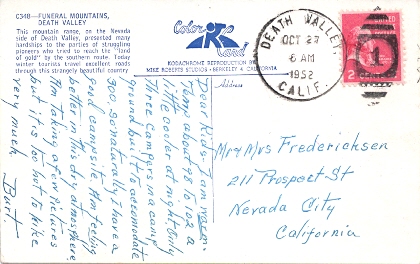 C348—FUNERAL MOUNTAINS,
DEATH VALLEY
This mountain range, on the Nevada
side of Death Valley, presented many
hardships to the parties of struggling
pioneers who tried to reach the "land
of gold" by the southern route. Today
winter tourists travel excellent roads
through this strangely beautiful country
Color
Card
KODACHROME REPRODUCTION BY
MIKE ROBERTS STUDIOS - BERKELEY 4 CALIFORNIA
Address
DEATH VALLEY,
OCT 27
6 AM
1952
CALIF.
Dear Kids - I am warm.
Than about 98 to 102 a
little cooler at night. Only
Three campers in a camp
ground built to accomodate
300 so naturally I have a
good campsite. Am feeling
better this dry atmosphere.
Am taking a few pictures
but it's too hot to hike
very much. Burt.
Mr & Mrs Fredericksen
211 Prospect St
Nevada City
California